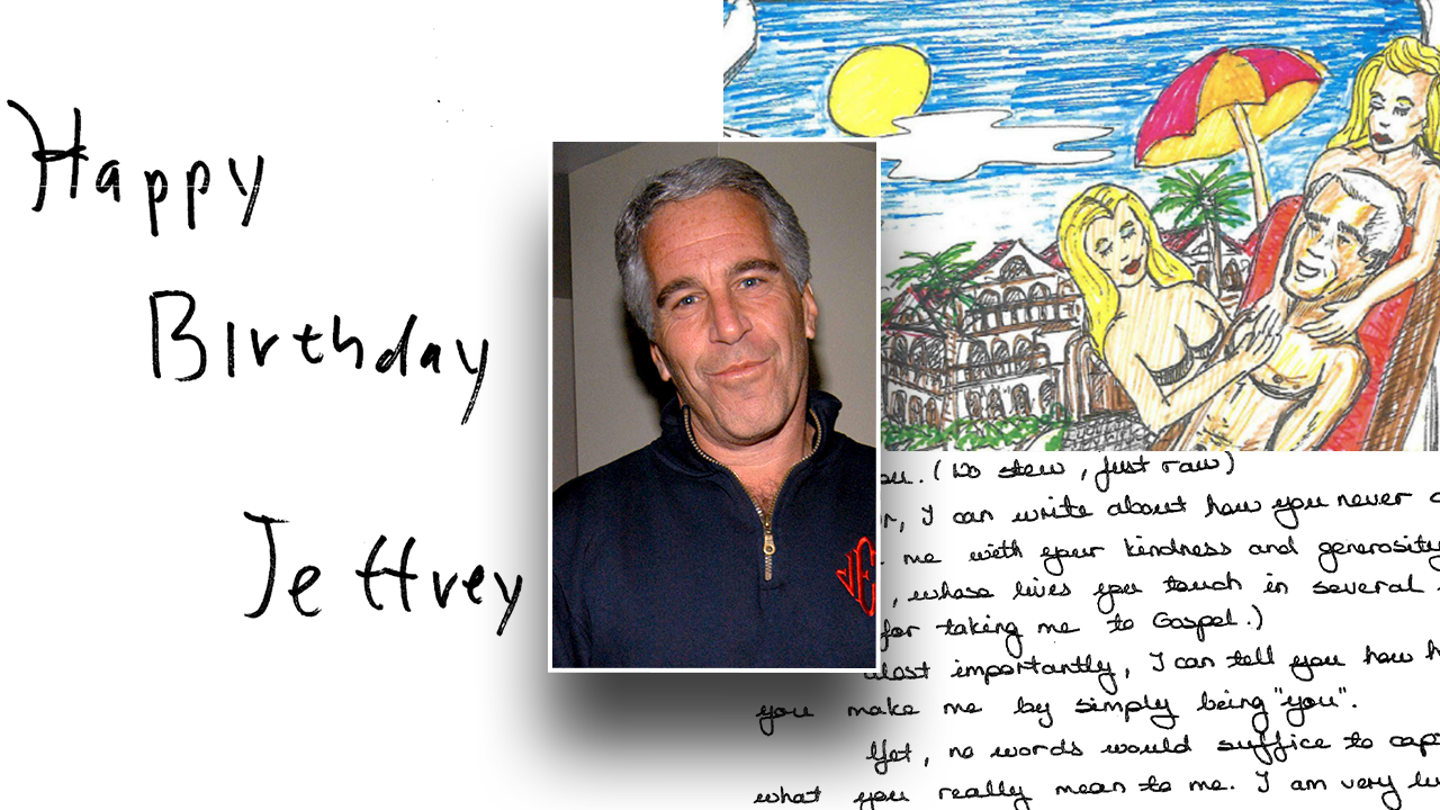 Happy
Birthday
Jeffrey
(No stew, just raw)
I can write about how you never
me with your kindness and generosity
, whose lives you touch in several
for taking me to Gospel.)
importantly, I can tell you how
you make me by simply being "you".
Yet, no words would suffice to
what you really mean to me. I am very